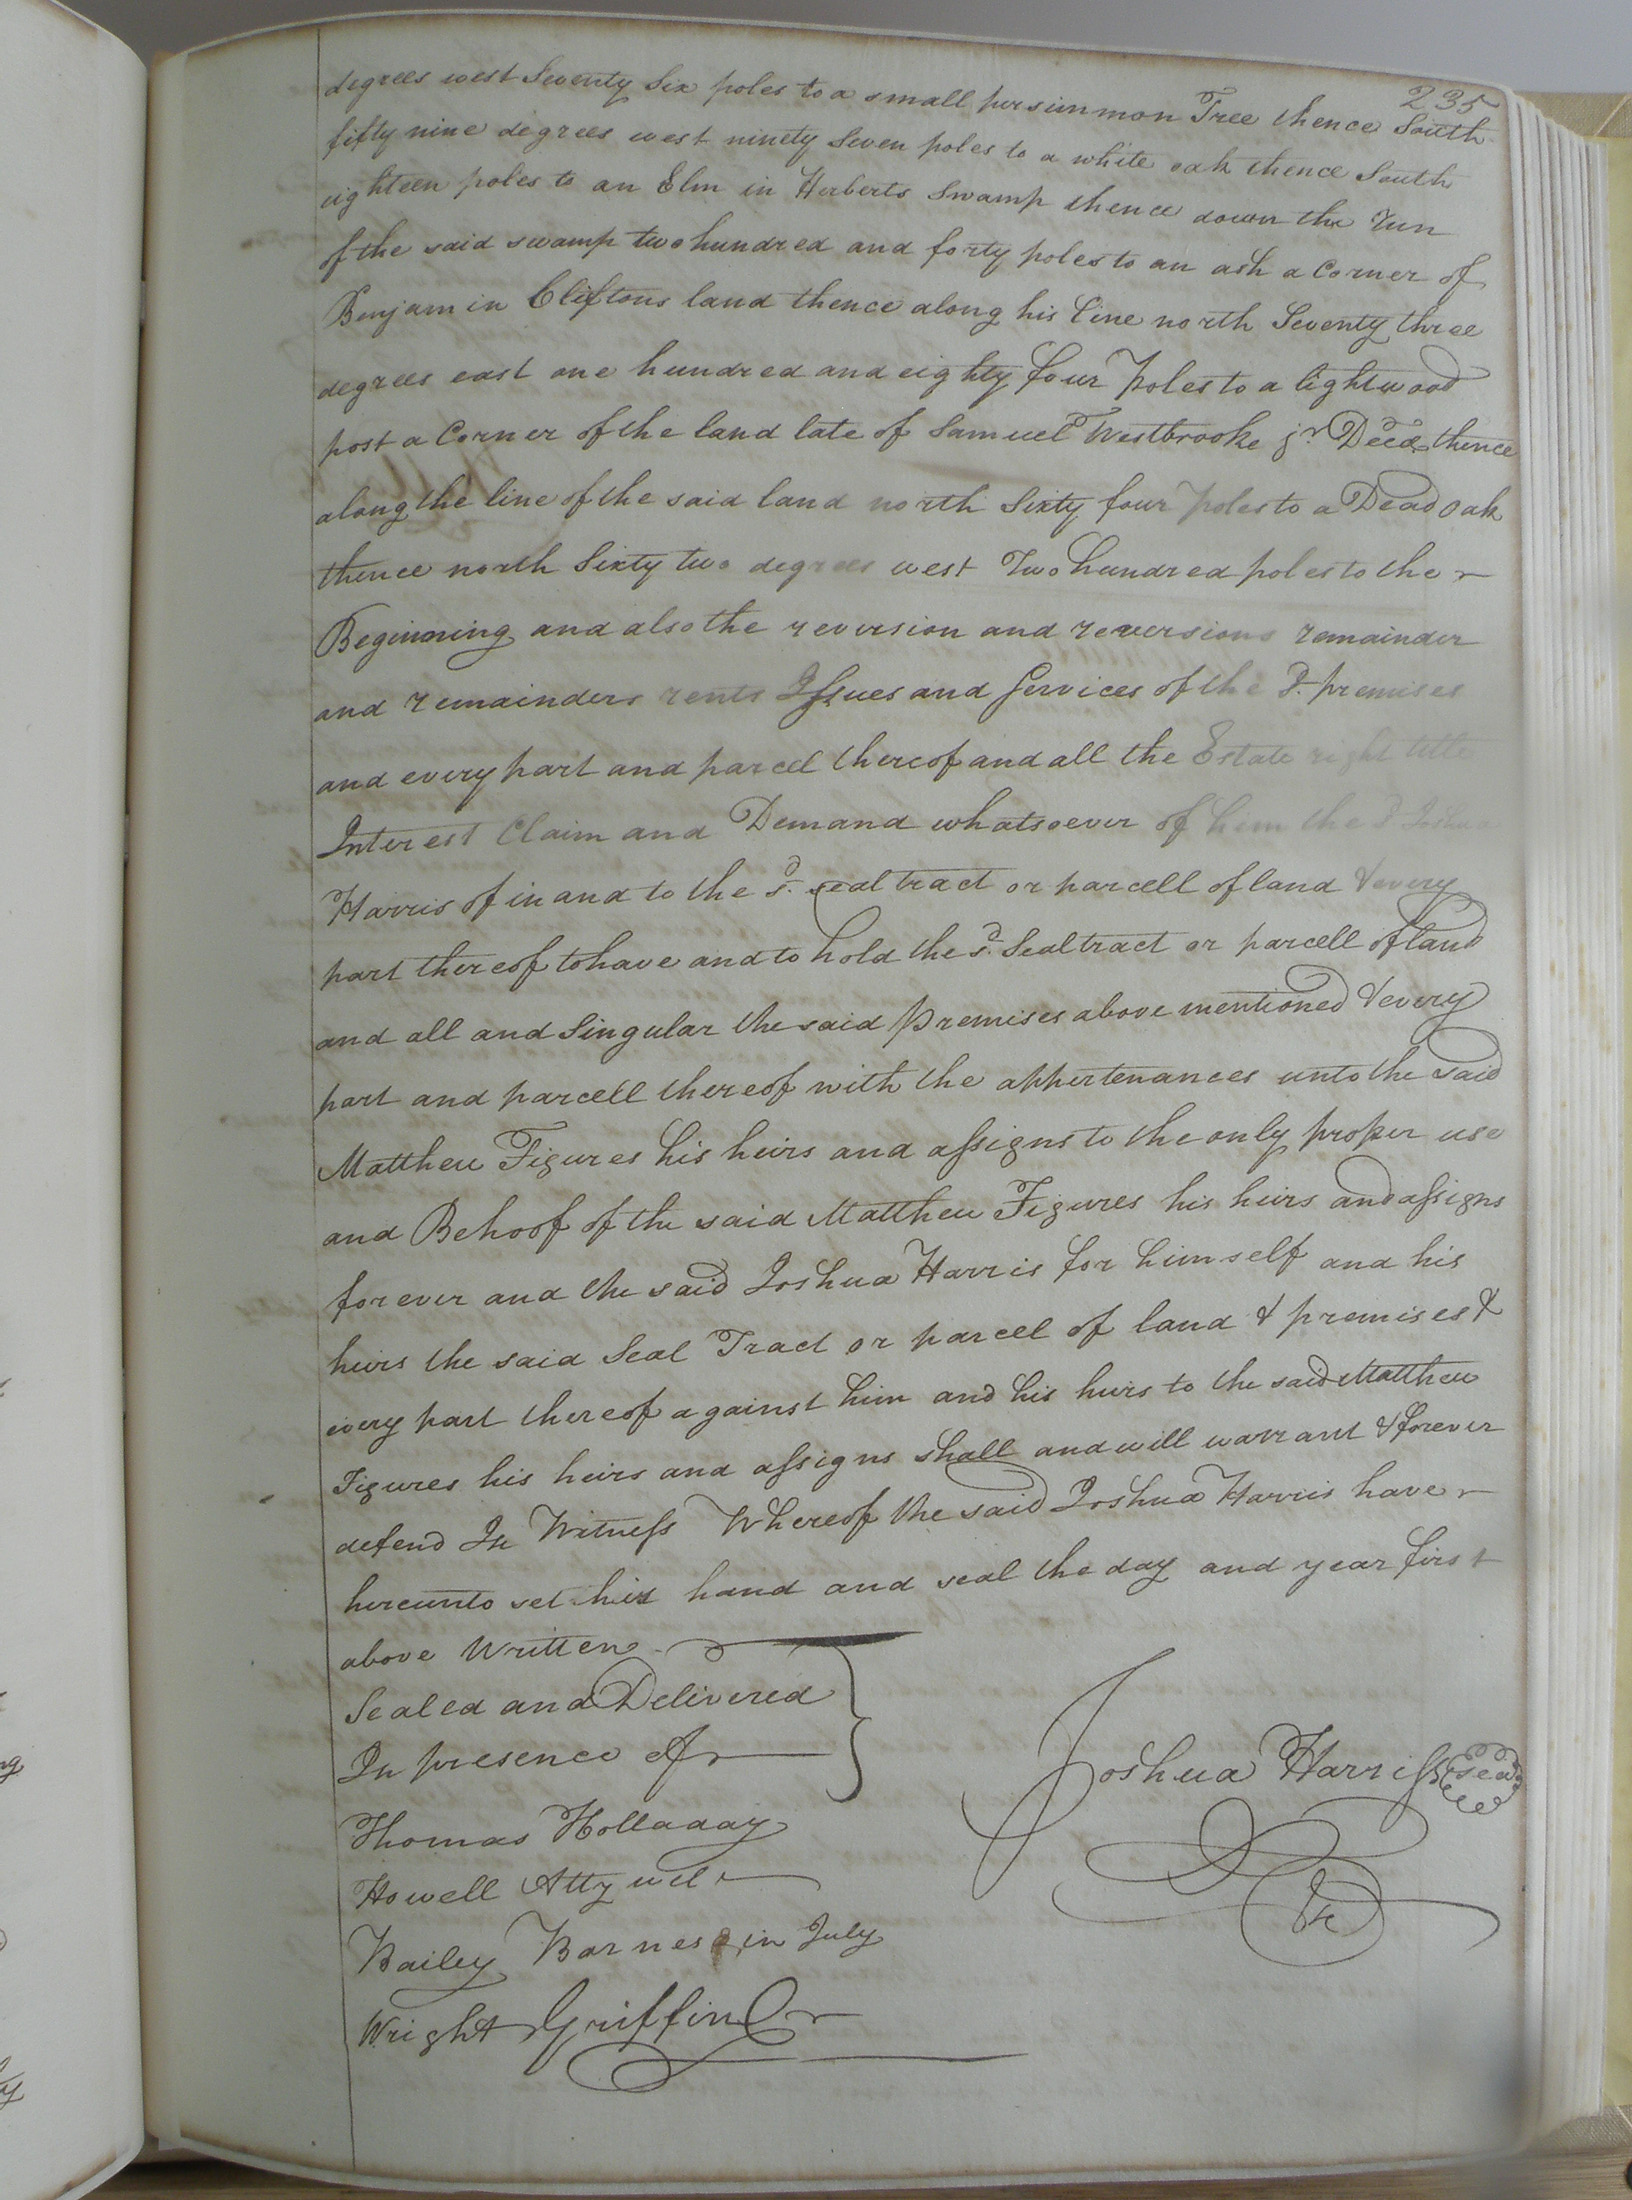 235
degrees west Seventy Six poles to a small persimmon Tree thence South
fifty nine degrees west ninety Seven poles to a white oak thence South
eighteen poles to an Elm in Herberts Swamp thence down the Run
of the said swamp two hundred and forty poles to an ash a Corner of
Benjamin Cliftons land thence along his line north Seventy three
degrees east one hundred and eighty four poles to a lightwood
post a Corner of the land late of Samuel Westbrooke jr Decd thence
along the line of the said land north Sixty four poles to a Dead oak
thence north Sixty two degrees west Two hundred poles to the
Beginning and also the reversion and reversions remainder
and remainders rents Issues and Services of the sd. premises
and every part and parcel thereof and all the Estate right title
Interest Claim and Demand whatsoever of him the sd Joshua
Harris of in and to the sd. seal tract or parcell of land & every
part thereof to have and to hold the sd. Seal tract or parcell of land
and all and Singular the said premises above mentioned & every
part and parcell thereof with the appertenances unto the said
Matthew Figures his heirs and assigns to the only proper use
and Behoof of the said Matthew Figures his heirs and assigns
forever and the said Joshua Harris for himself and his
heirs the said Seal Tract or parcel of land & premises &
every part thereof against him and his heirs to the said Matthew
Figures his heirs and assigns shall and will warrant & forever
defend In Witness Whereof the said Joshua Harris have
hereunto set his hand and seal the day and year first
above Written
Sealed and Delivered
In presence of
Joshua Harriss seal
Thomas Holladay
Howell Atty
Bailey Barnes in July
Wright Griffin